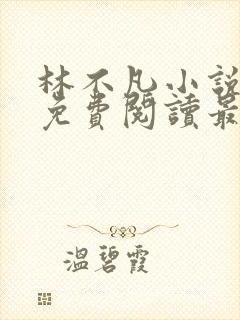 林不凡小説
免費閱讀最
溫碧霞